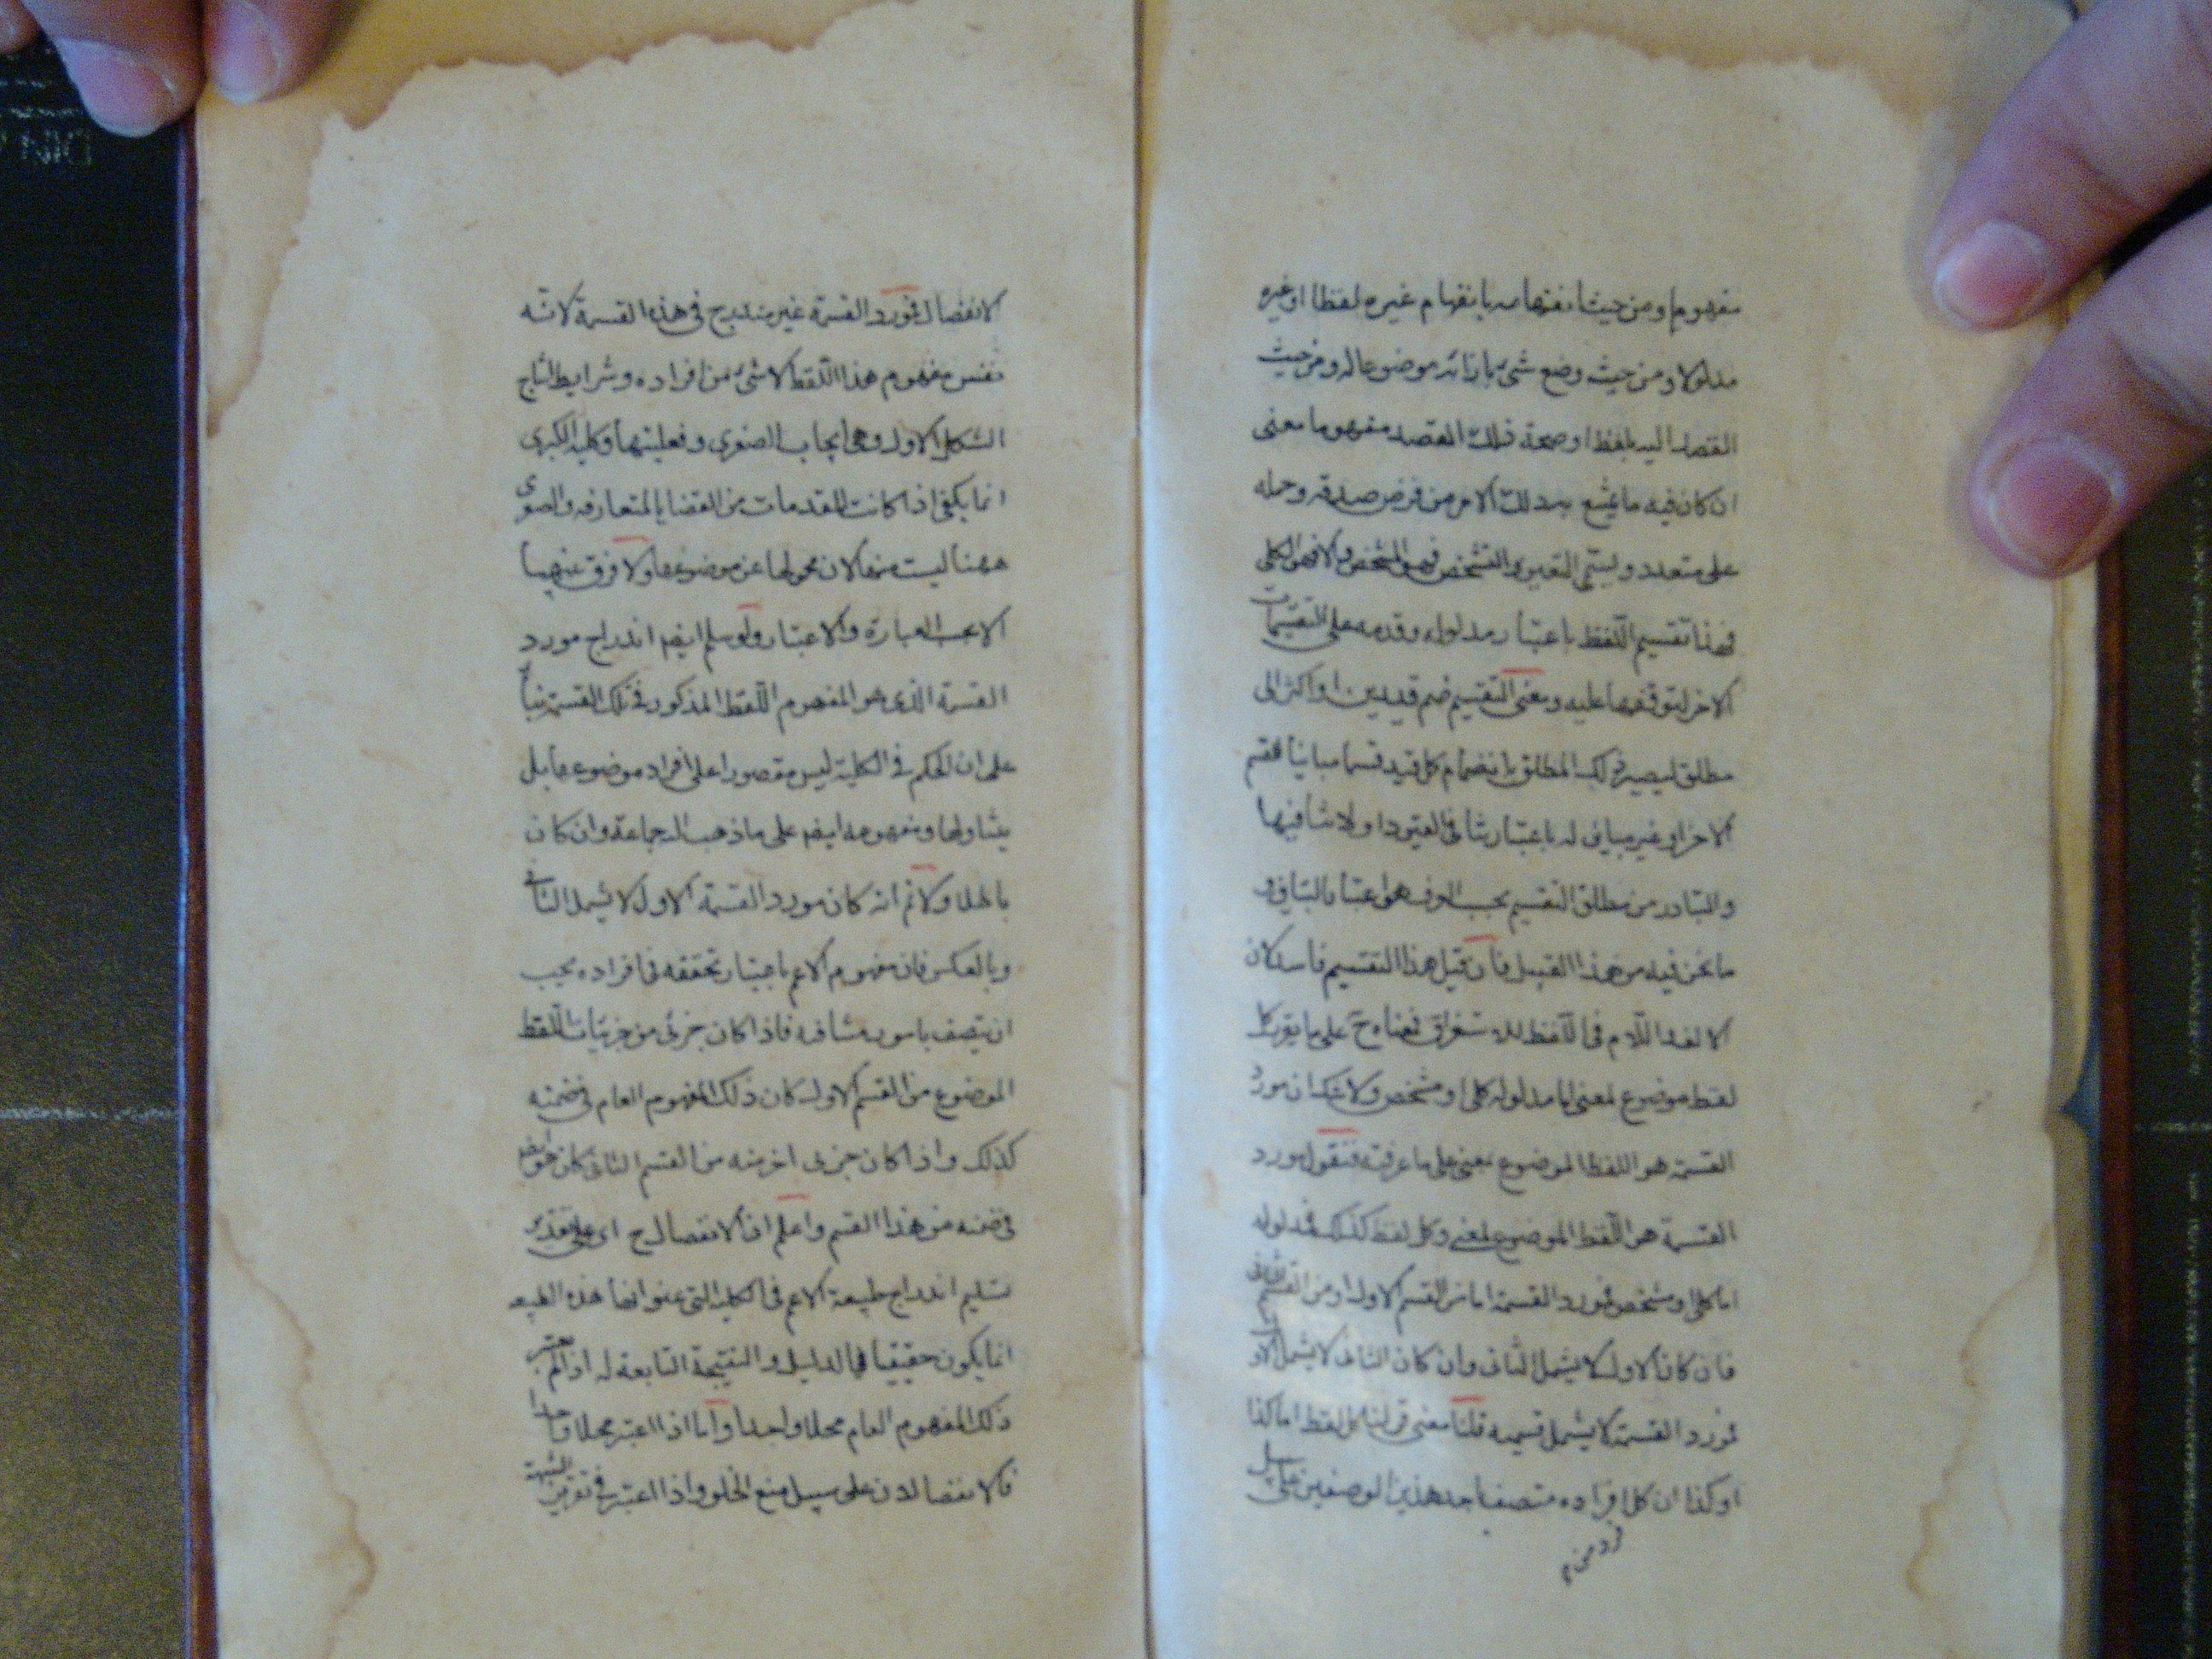 مفهوما ومن حيث انفهامه بانفهام غيره لفظا او غيره
مدلولا ومن حيث وضع شئ بازائه موضوعا له ومن حيث
القصد اليه بلفظ او صحة ذلك القصد مفهوما معنى
ان كان فيه ما يمنع بذلك الامر من فرض صدقه وحمله
على متعدد ويسمى التعين والتشخص فهو المشخص والا فهو الكلى
فهذا تقسيم اللفظ باعتبار مدلوله وقدمه على التقسيمات
الاخر لتوقفها عليه ومعنى التقسيم ضم قيدين او اكثر الى
مطلق ليصير ذلك المطلق بانضمام كل قيد قسما مباينا لقسم
الاخر او غير مباين له باعتبار تنافى القيود او لا تنافيها
والمتبادر من مطلق التقسيم بحسب العرف هو اعتبار التنافى و
ما نحن فيه من هذا القبيل فان قيل هذا التقسيم فاسد لان
الالف واللام فى اللفظ للاستغراق فمعناه ح على ما تقرر كل
لفظ موضوع لمعنى اما مدلوله كلى او مشخص ولا شك ان مورد
القسمة هو اللفظ الموضوع لمعنى على ما عرفته فنقول مورد
القسمة هو اللفظ الموضوع لمعنى وكل لفظ كذلك فمدلوله
اما كلى او مشخص فمورد القسمة اما من القسم الاول او من القسم الثانى
فان كان الاول لا يشمل الثانى وان كان الثانى لا يشمل الاول
فمورد القسمة لا يشمل قسيمه قلنا معنى قولنا كل لفظ اما كذا
او كذا ان كل افراده متصف باحد هذين الوصفين على سبيل
الانفصال فمورد القسمة غير مندرج فى هذه القسمة لانه
نفس مفهوم هذا اللفظ لا شئ من افراده وشرايط انتاج
الشكل الاول وهى ايجاب الصغرى وفعليتها وكلية الكبرى
انما يكفى اذا كانت المقدمات من القضايا المتعارفه والصغرى
ههنا ليست منها لان محمولها عن موضوعها ولا فرق بينهما
الا بحسب العبارة والاعتبار ولو سلم ايضا اندراج مورد
القسمة الذى هو المفهوم اللفظ المذكور فى تلك القسمة بناء
على ان الحكم فى الكلية ليس مقصورا على افراد موضوعها بل
يتناولها ومفهومه ايضا على ما ذهب اليه جماعة وان كان
باطلا ولا نم انه كان مورد القسمة الاول لا يشمل الثانى
وبالعكس فان مفهوم الاعم باعتبار تحققه فى افراده يجب
ان يتصف بامور متنافية فاذا كان جزئى من جزئيات اللفظ
الموضوع من القسم الاول كان ذلك المفهوم العام فى ضمنه
كذلك واذا كان جزئى اخر منه من القسم الثانى كان هو ايضا
فى ضمنه من هذا القسم واعلم ان الانفصال ح اى على تقدير
تسليم اندراج طبيعة الاعم فى الكلية التى عنوانها هذه الطبيعه
انما يكون حقيقيا فى الدليل والنتيجة التابعة له اذا لم يعتبر
ذلك المفهوم العام محلا واحدا واما اذا اعتبر محلا واحدا
فالانفصالان على سبيل منع الخلو واذا اعتبر فى تقرير الشبهة